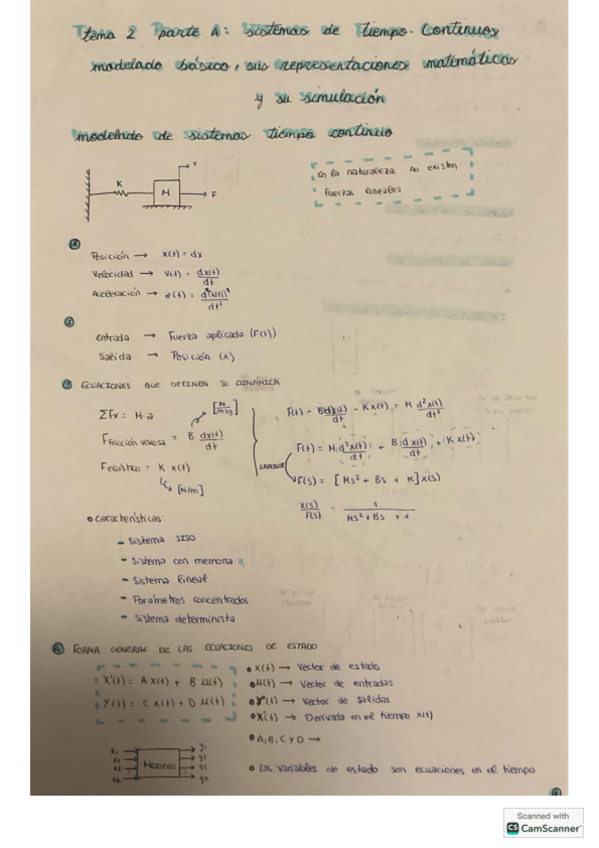 Tema 2 Parte A: Sistemas de Tiempo. Continuos
modelado básico, sus representaciones matemáticas
y su simulación
modelado de sistemas tiempo continuo
K
M
x
F
En la naturaleza no existen
fuerzas lineales
Posición → x(t) = dx
Velocidad → v(t) = dx(t)/dt
Aceleración → a(t) = d²x(t)²/dt²
Entrada → Fuerza aplicada (F(t))
Salida → Posición (x)
ECUACIONES QUE DEFINEN SU DINÁMICA
ΣFx = M·a
F fricción viscosa = B dx(t)/dt
F elástico = K x(t)
[N/m]
F(t) - B dx(t)/dt - Kx(t) = M d²x(t)/dt²
F(t) = M d²x(t)/dt² + B d x(t)/dt + K x(t)
LAPLACE
F(s) = [Ms² + Bs + K] x(s)
X(s)/F(s) = 1/Ms² + Bs + 1
Características:
- Sistema SISO
- Sistema con memoria
- Sistema lineal
- Parámetros concentrados
- Sistema determinista
FORMA GENERAL DE LAS ECUACIONES DE ESTADO
X'(t) = A x(t) + B μ(t)
Y(t) = C x(t) + D μ(t)
x(t) → Vector de estado
μ(t) → Vector de entradas
Y(t) → Vector de salidas
X'(t) → Derivada en el tiempo x(t)
A, B, C y D →
Las variables de estado son ecuaciones en el tiempo
MODELO
y1
Scanned with
CS CamScanner